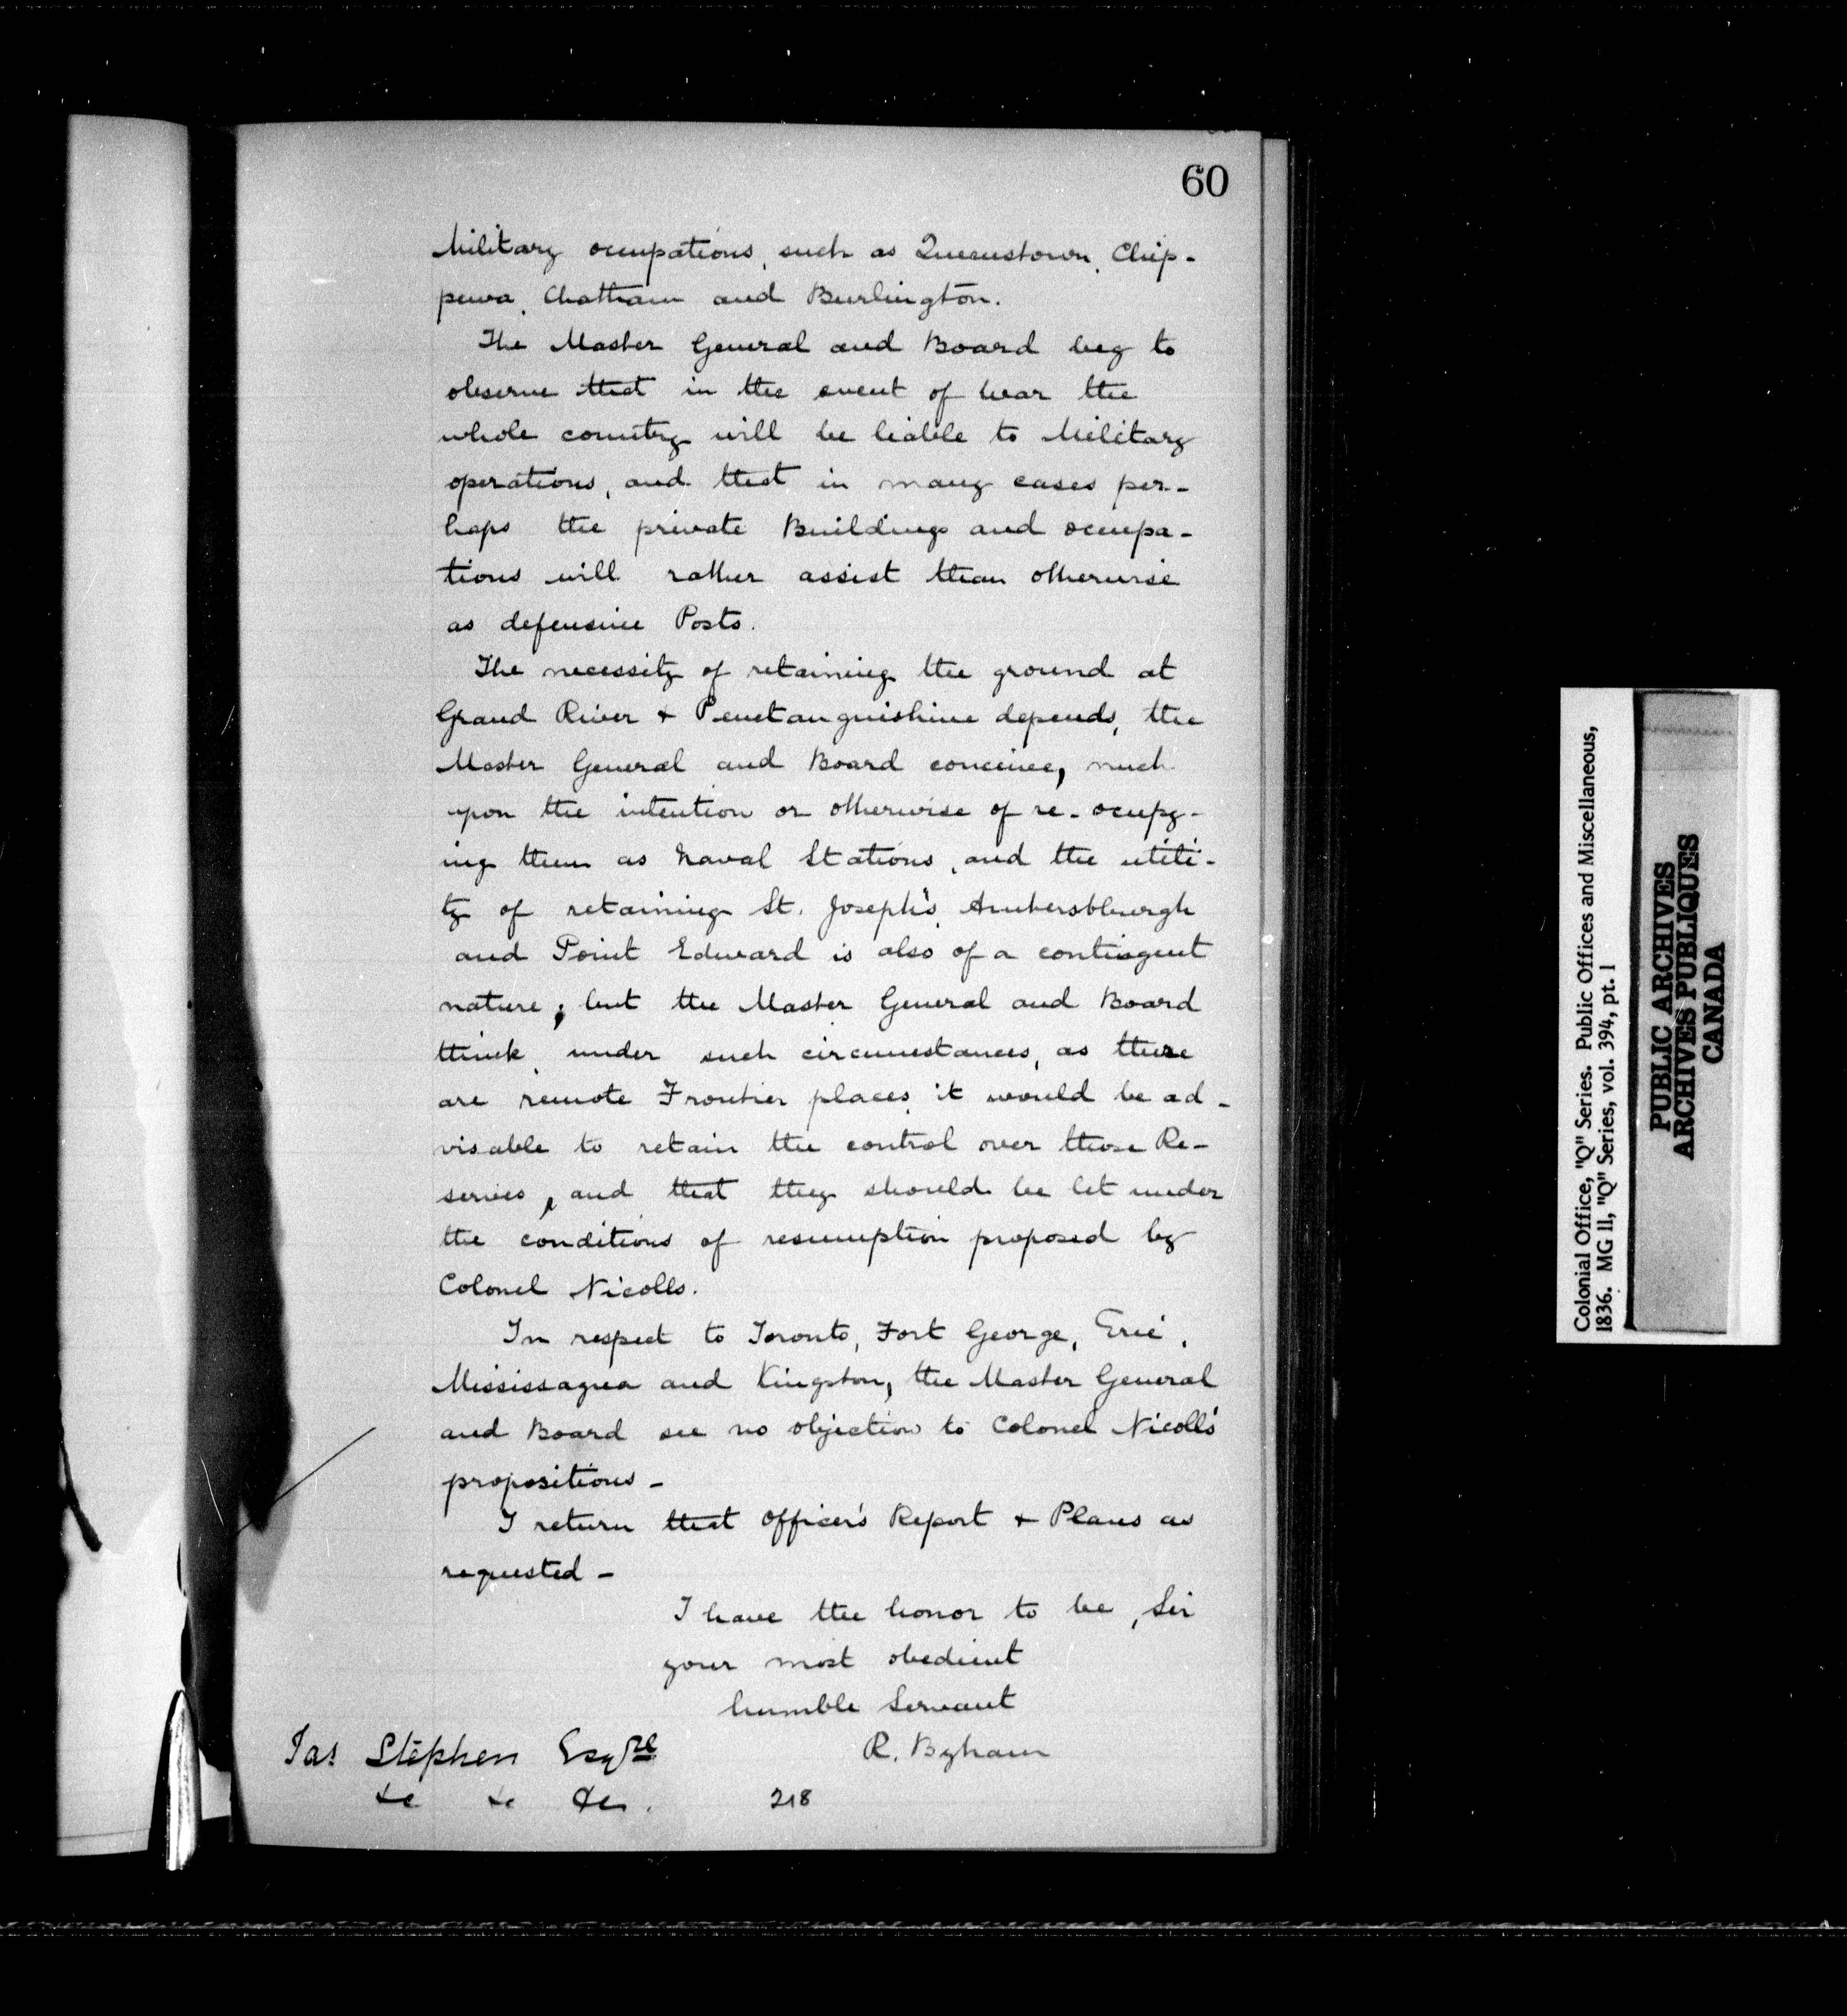 60
Military occupations, such as Queenstown, Chip-
pewa, Chatham and Burlington.
The Master General and Board beg to
observe that in the event of War the
whole country will be liable to Military
operations, and that in many cases per-
haps the private Buildings and occupa-
tions will rather assist than otherwise
as defensive Posts.
The necessity of retaining the ground at
Grand River & Penetanguishine depends, the
Master General and Board conceive, much
upon the intention or otherwise of re-ocupy-
ing them as Naval Stations, and the utili-
ty of retaining St. Joseph's, Amhersbburgh
and Point Edward is also of a contingent
nature; but the Master General and Board
think, under such circumstances, as these
are remote Frontier places, it would be ad-
visable to retain the control over those Re-
serves, and that they should be let under
the conditions of resumption proposed by
Colonel Nicolls.
In respect to Toronto, Fort George, Erie,
Mississagua and Kingston, the Master General
and Board see no objection to Colonel Nicolls'
propositions -
I return that Officer's Report & Plans as
requested -
I have the honor to be, Sir
your most obedient
humble Servant
R. Byham
Jas Stephen Esqre
&c &c &c.
218
Colonial Office, "Q" Series. Public Offices and Miscellaneous,
1836. MG 11, "Q" Series, vol. 394, pt. 1
PUBLIC ARCHIVES
ARCHIVES PUBLIQUES
CANADA